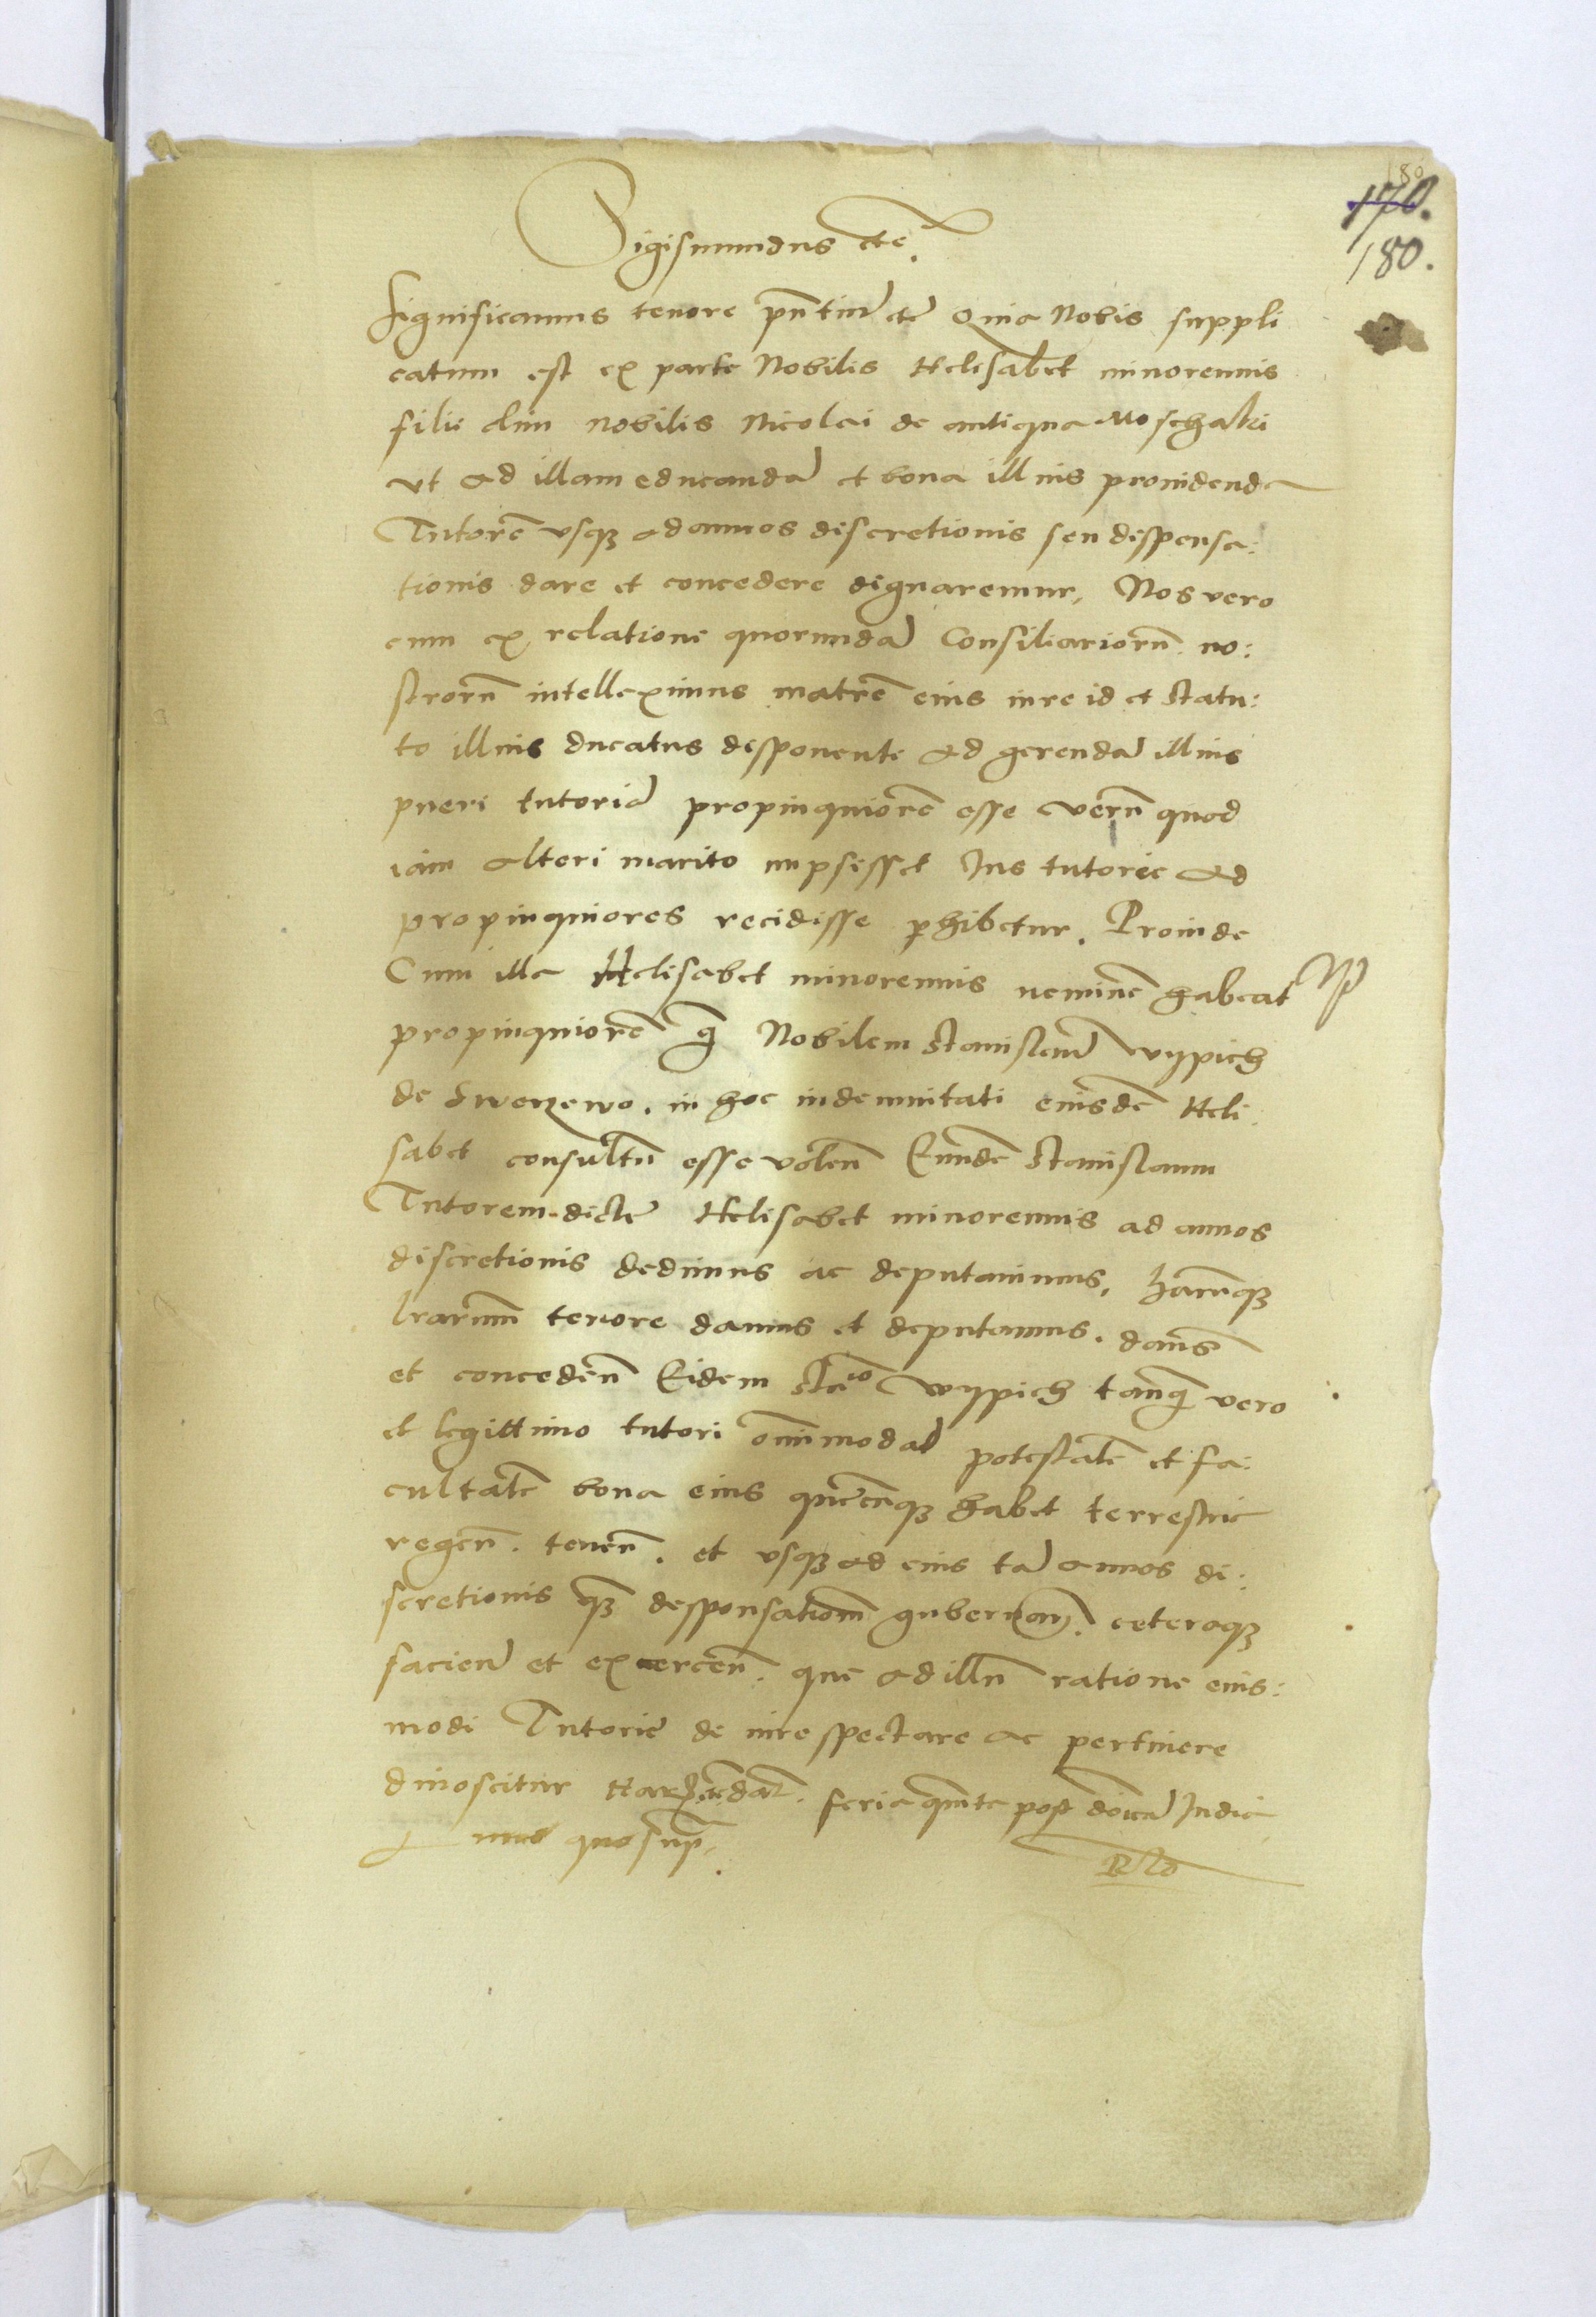 180
170.
180.
Sigismundus etc.
Significamus tenore pntiu etc Quia Nobis suppli
catum est ex parte Nobilis Helisabet minorennis
filie olim nobilis Nicolai de antiqua Moschaki
ut ad illam educanda et bona illius providenda
Tutore usq ad annos discretionis seu dispensa:
tionis dare et concedere dignaremur, Nos vero
cum ex relatione quorunda Consiliarioru no:
stroru intelleximus matre eius iure id et statu:
to illius ducatus disponente ad gerenda illius
pueri tutoria propinquiore esse veru quod
iam alteri marito nupsisset Ius tutorie ad
propinquiores recidisse phibetur. Proinde
Cum illa Helisabet minorennis nemine habeat
propinquiore q Nobilem Stanislau Wypich
de Swerzewo. in hoc indemnitati eiusde Heli
sabet consultu esse volen Eunde Stanislaum
Tutorem dicte Helisabet minorennis ad annos
discretionis dedimus ac deputavimus, harumq
lrarum tenore damus et deputamus. dans
et conceden Eidem Stao Wypich tanq vero
et legittimo tutori omnimoda potestate et fa:
cultate bona eius quecunq habet terrestria
regen. tenen. et usq ad eius ta annos di:
scretionis q desponsationem gubernan. ceteraq
facien et exercen. que ad illu ratione eius:
modi Tutorie de iure spectare ac pertinere
dinoscitur Har. dat. feria quinta post doica Iudica
anno quo sup.